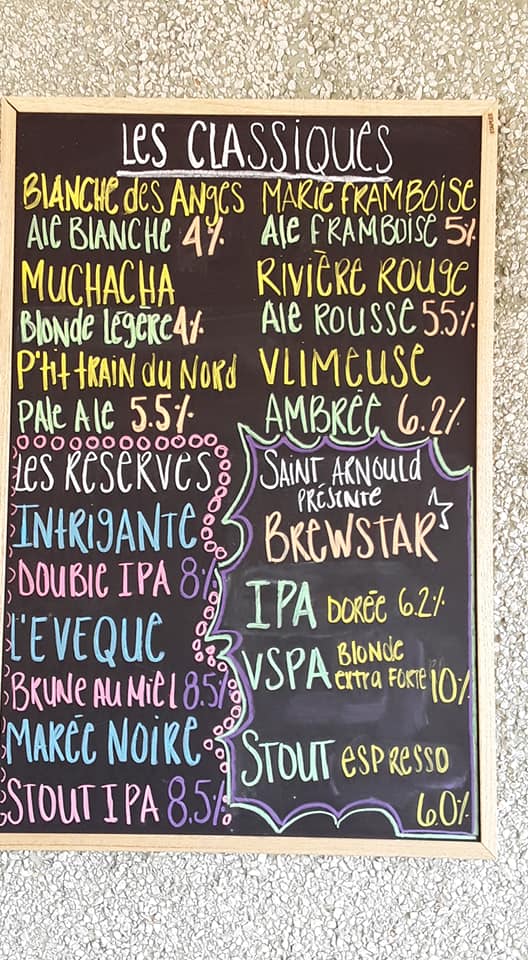 LES CLASSIQUES
BLANCHE des ANGES
ALE BLANCHE 4%
MUCHACHA
Blonde Légère 4%
P'tit tRAIN du NORd
PALE ALE 5.5%
MARIE FRAMBOISE
ALE FRAMBOISE 5%
RIVIÈRE ROUGE
ALE ROUSSE 5.5%
VLIMEUSE
AMBRÉE 6.2%
LES RÉSERVES
INTRIGANTE
DOUBLE IPA 8%
L'EVEQUE
BRUNE AU MIEL 8.5%
MARÉE NOIRE
STOUT IPA 8.5%
SAINT ARNOULD
PRÉSENTE
BREWSTAR
IPA DORÉE 6.2%
VSPA BLONDE
extra FORTE 10%
STOUT ESPRESSO
6.0%